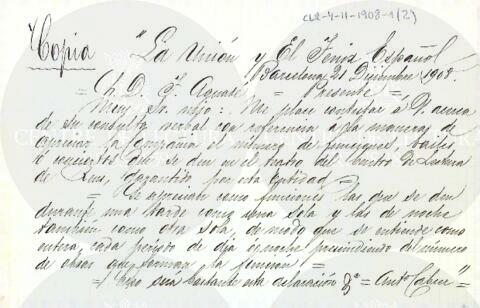 CLR-4-11-1908-1(2)
Copia "La Unión y El Fenix Español
Barcelona 21 Diciembre 1908.
Sr. D. F. Aguadé = Presente =
Muy Sr. mio: Me place contestar á V. acerca
de su consulta verbal con referencia a la manera de
apreciar la Compañia el número de funciones, bailes
ó conciertos que se den en el teatro del Centro de Lectura
de Reus, garantida por esta Entidad =
= Se aprecian como funciones las que se den
durante una tarde como una sola y las de noche
también como otra sola, de modo que se entiende como
entera, cada periodo de dia ó noche prescindiendo del número
de obras que forman la función =
= Creo sera bastante esta aclaración = Antº